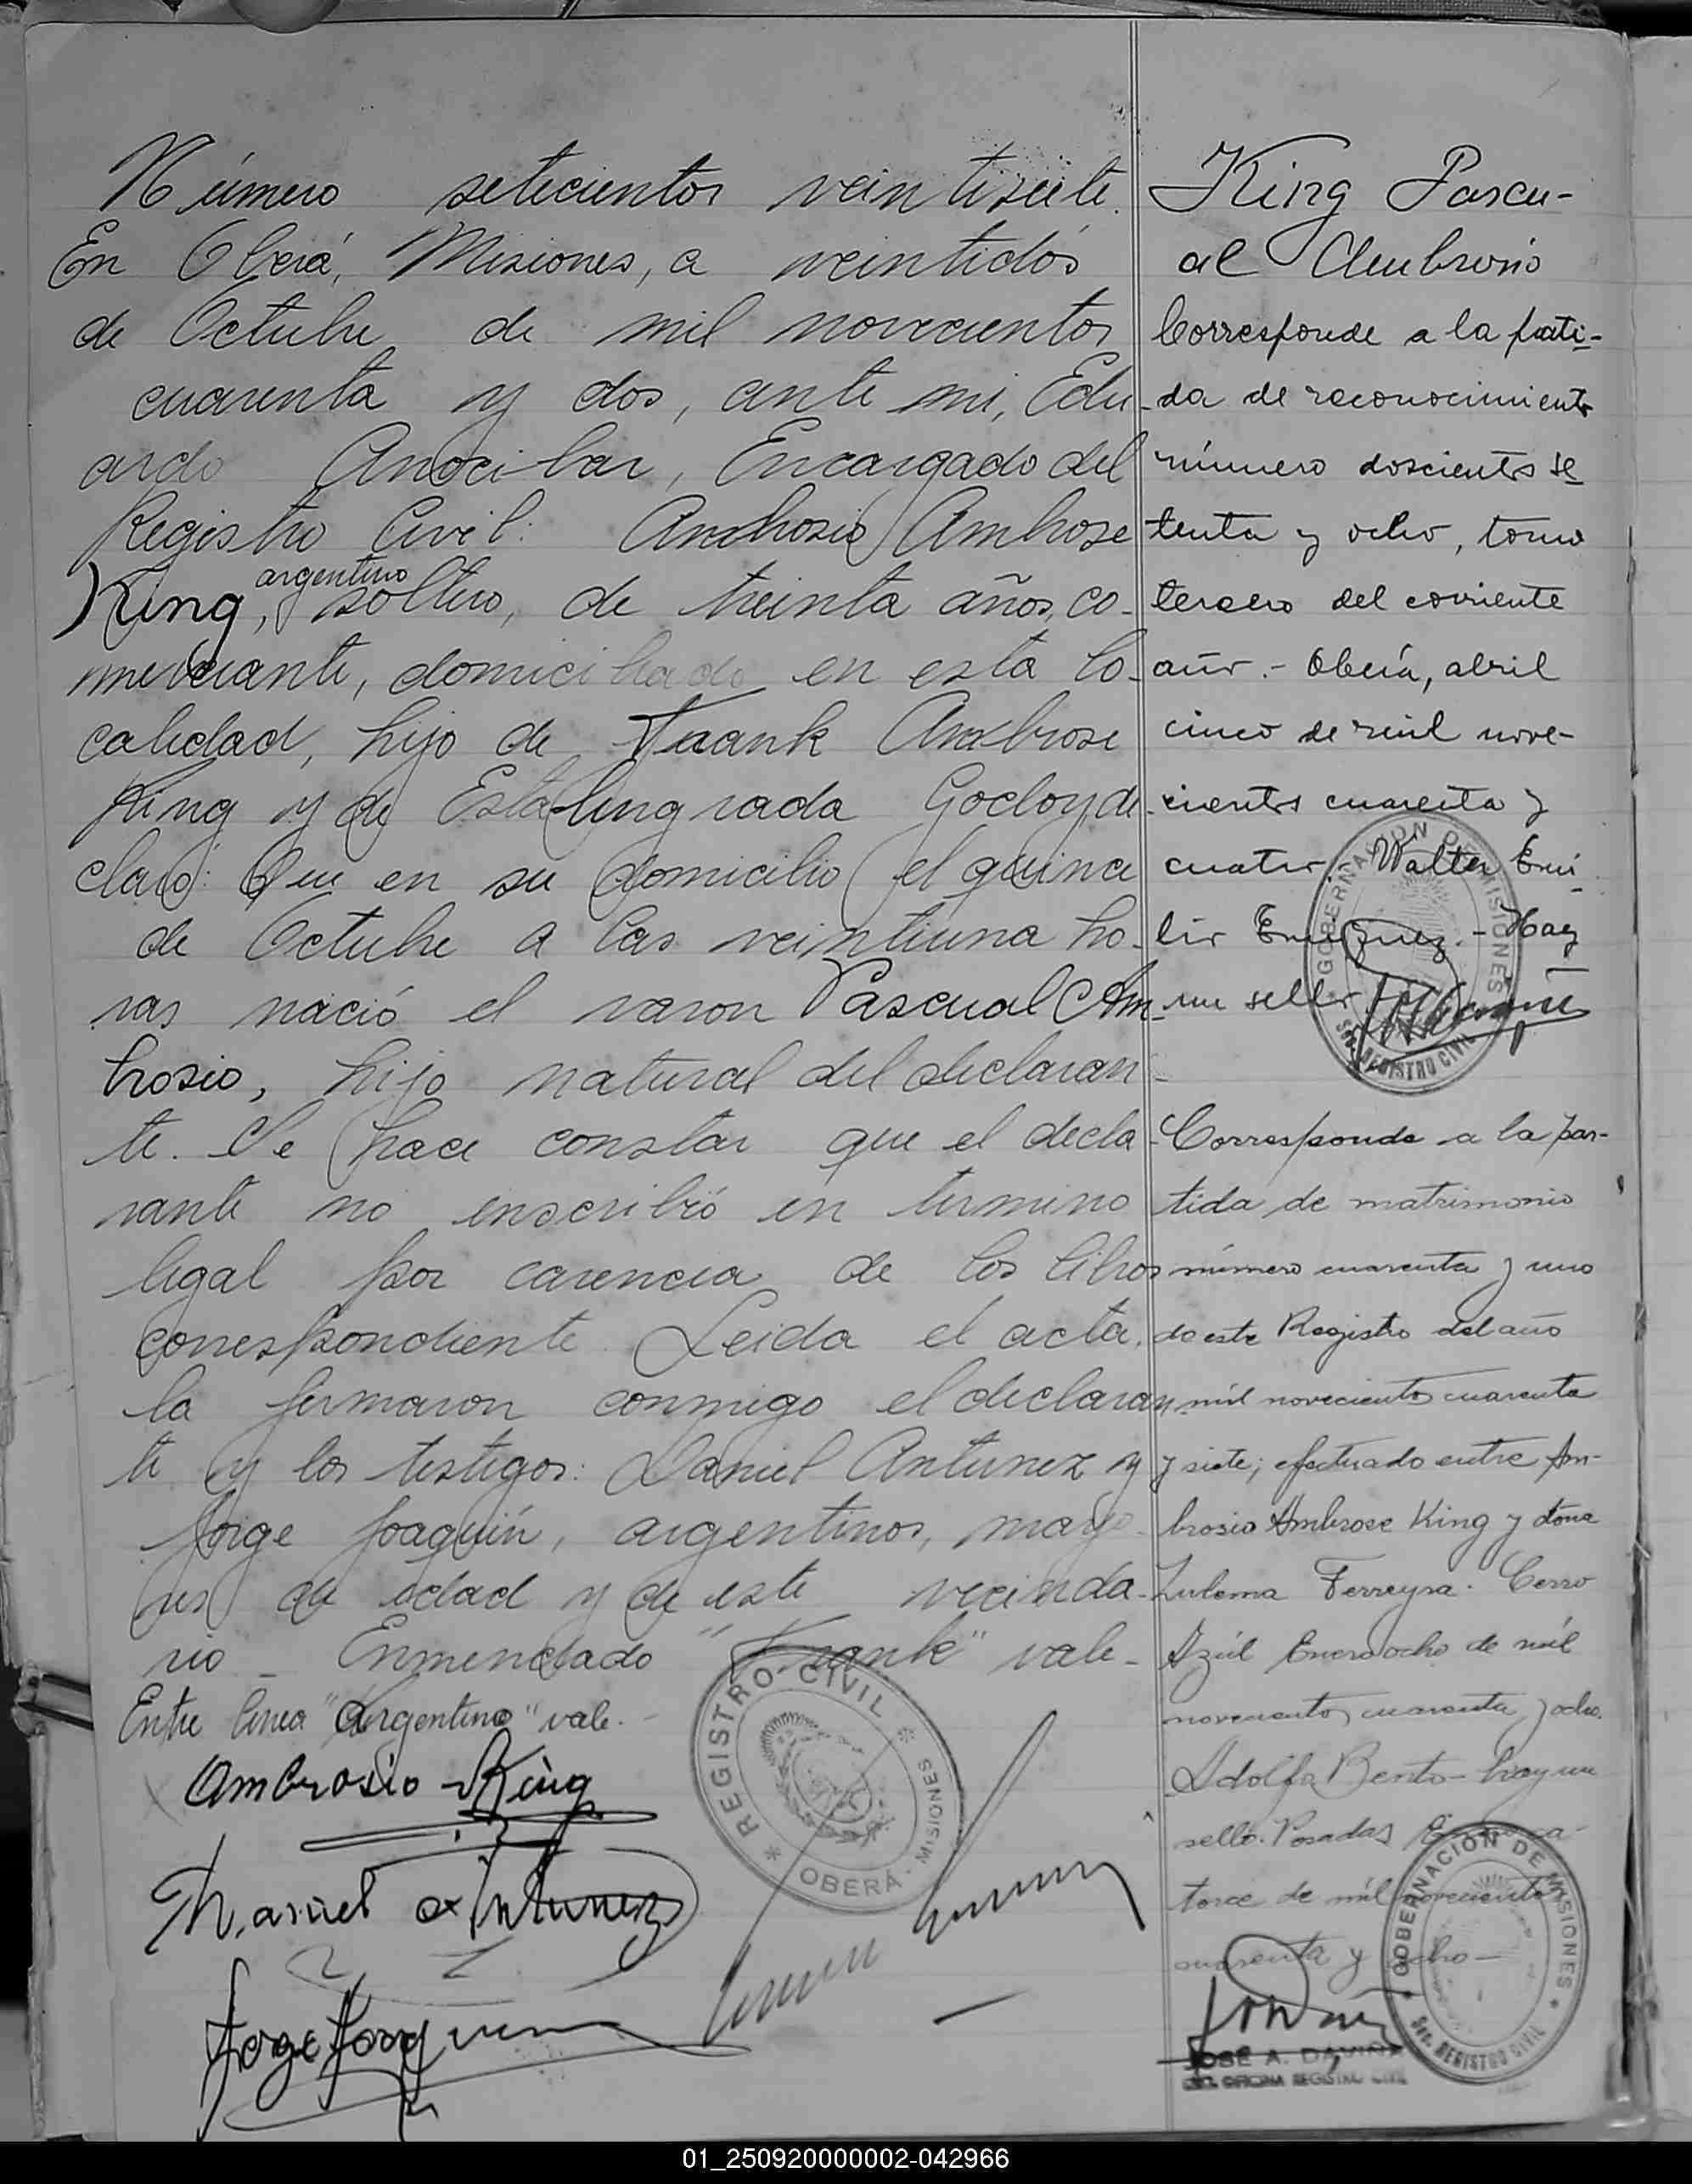 Número setecientos veintisiete.
En Oberá, Misiones, a veintidós
de Octubre de mil novecientos
cuarenta y dos, ante mi, Edu-
ardo Anocibar, Encargado del
Registro Civil: Ambrosio Ambrose
argentino
King, soltero, de treinta años, co-
merciante, domiciliado en esta lo-
calidad, hijo de Frank Ambrose
King y de Estalingrada Godoy, de-
claró: Que en su domicilio el quince
de Octubre a las veintiuna ho-
ras nació el varon Pascual Am-
brosio, hijo natural del declaran-
te. Se hace constar que el decla-
rante no inscribió en termino
legal por carencia de los libros
correspondiente. Leida el acta,
la firmaron conmigo el declaran
te y los testigos: Daniel Antunez y
Jorge Joaquín, argentinos, mayo-
res de edad y de este vecinda-
rio - Enmendado "Frank" vale-
Entre linea "argentino" vale. -
Ambrosio King
Antunez
Jorge Joaquin
King Pascu-
al Ambrosio
Corresponde a la parti-
da de reconocimiento
número doscientos se
tenta y ocho, tomo
tercero del corriente
año. - Oberá, abril
cinco de mil nove-
cientos cuarenta y
cuatro. Walter Emi-
lio Enriquez. - Hay
un sello.
GOBERNACION DE MISIONES
Sec. REGISTRO CIVIL
Corresponde a la par-
tida de matrimonio
número cuarenta y uno
de este Registro del año
mil novecientos cuarenta
y siete; efectuado entre Am-
brosio Ambrose King y doña
Zulema Ferreyra. Cerro
Azúl Enero ocho de mil
novecientos cuarenta y ocho.
Adolfo Bento - hay un
sello. Posadas Enero ca-
torce de mil novecientos
cuarenta y ocho -
REGISTRO CIVIL
OBERÁ - MISIONES
GOBERNACIÓN DE MISIONES
Sec. REGISTRO CIVIL
JOSÉ A. DAVIÑA
OFICINA REGISTRO CIVIL
01_250920000002-042966